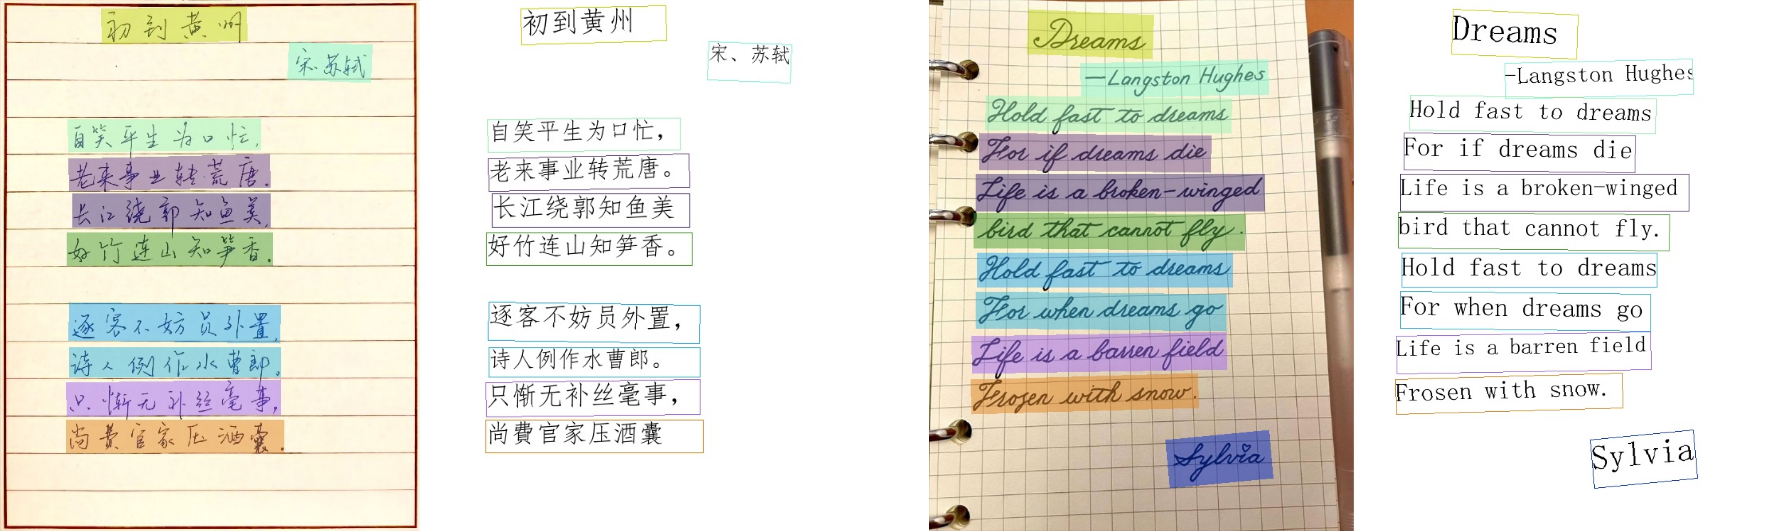 初到黄州
宋.苏轼
自笑平生为口忙,
老来事业转荒唐.
长江绕郭知鱼美,
好竹连山知笋香.
逐客不妨员外置,
诗人例作水曹郎。
只惭无补丝毫事,
尚费官家压酒囊.
初到黄州
宋、苏轼
自笑平生为口忙，
老来事业转荒唐。
长江绕郭知鱼美
好竹连山知笋香。
逐客不妨员外置，
诗人例作水曹郎。
只惭无补丝毫事，
尚費官家压酒囊
Dreams
—Langston Hughes
Hold fast to dreams
For if dreams die
Life is a broken-winged
bird that cannot fly.
Hold fast to dreams
For when dreams go
Life is a barren field
Frozen with snow.
Sylvia
Dreams
-Langston Hughes
Hold fast to dreams
For if dreams die
Life is a broken-winged
bird that cannot fly.
Hold fast to dreams
For when dreams go
Life is a barren field
Frosen with snow.
Sylvia